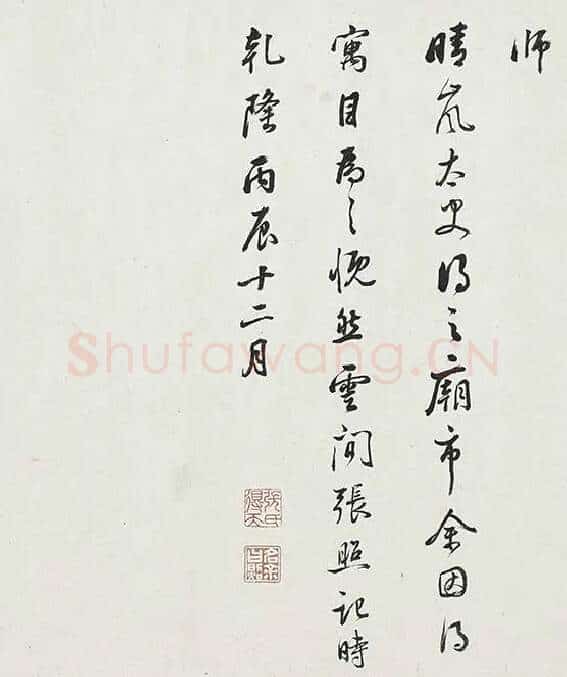 师
晴嵐太史得之廟市余因得
寓目為之慨然雲間張照記時
乾隆丙辰十二月
張氏得天
Shufawang.CN